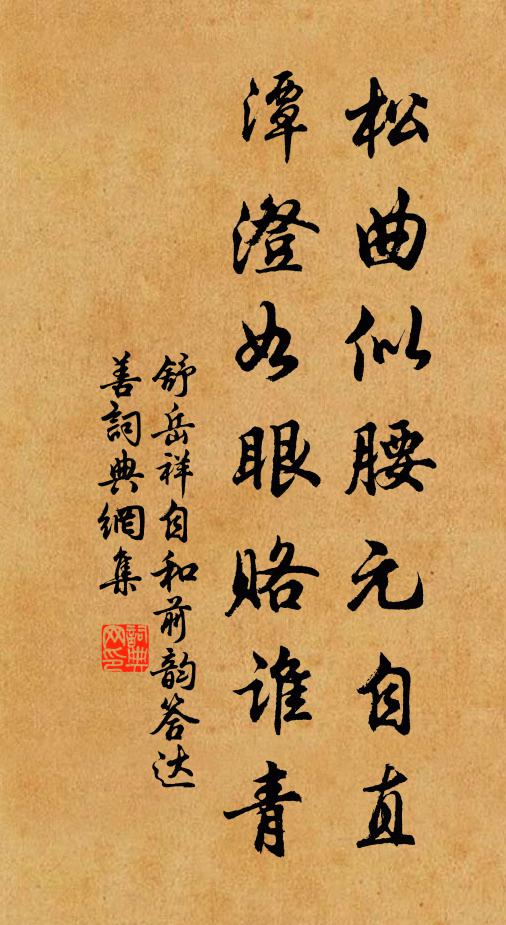 松曲似腰元自直
潭澄如眼賂谁青
舒岳祥自和前韵答达
善詞典網集
詞典
网印